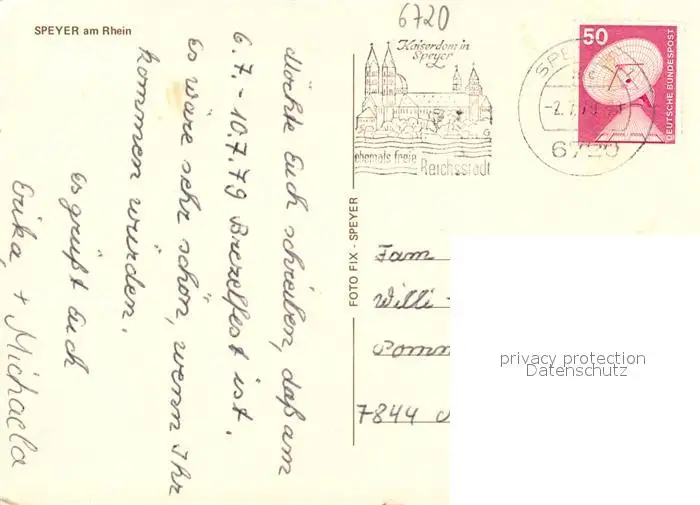 6720
SPEYER am Rhein
Möchte Euch schreiben, daß am
6.7. - 10.7.79 Brezelfest ist.
Es wäre sehr schön, wenn Ihr
kommen würden.
Es grüßt Euch
Erika + Michaela
FOTO FIX - SPEYER
Kaiserdom in
Speyer
ehemals freie
Reichsstadt
6720
50
DEUTSCHE BUNDESPOST
Fam
Willi
7844
privacy protection
Datenschutz